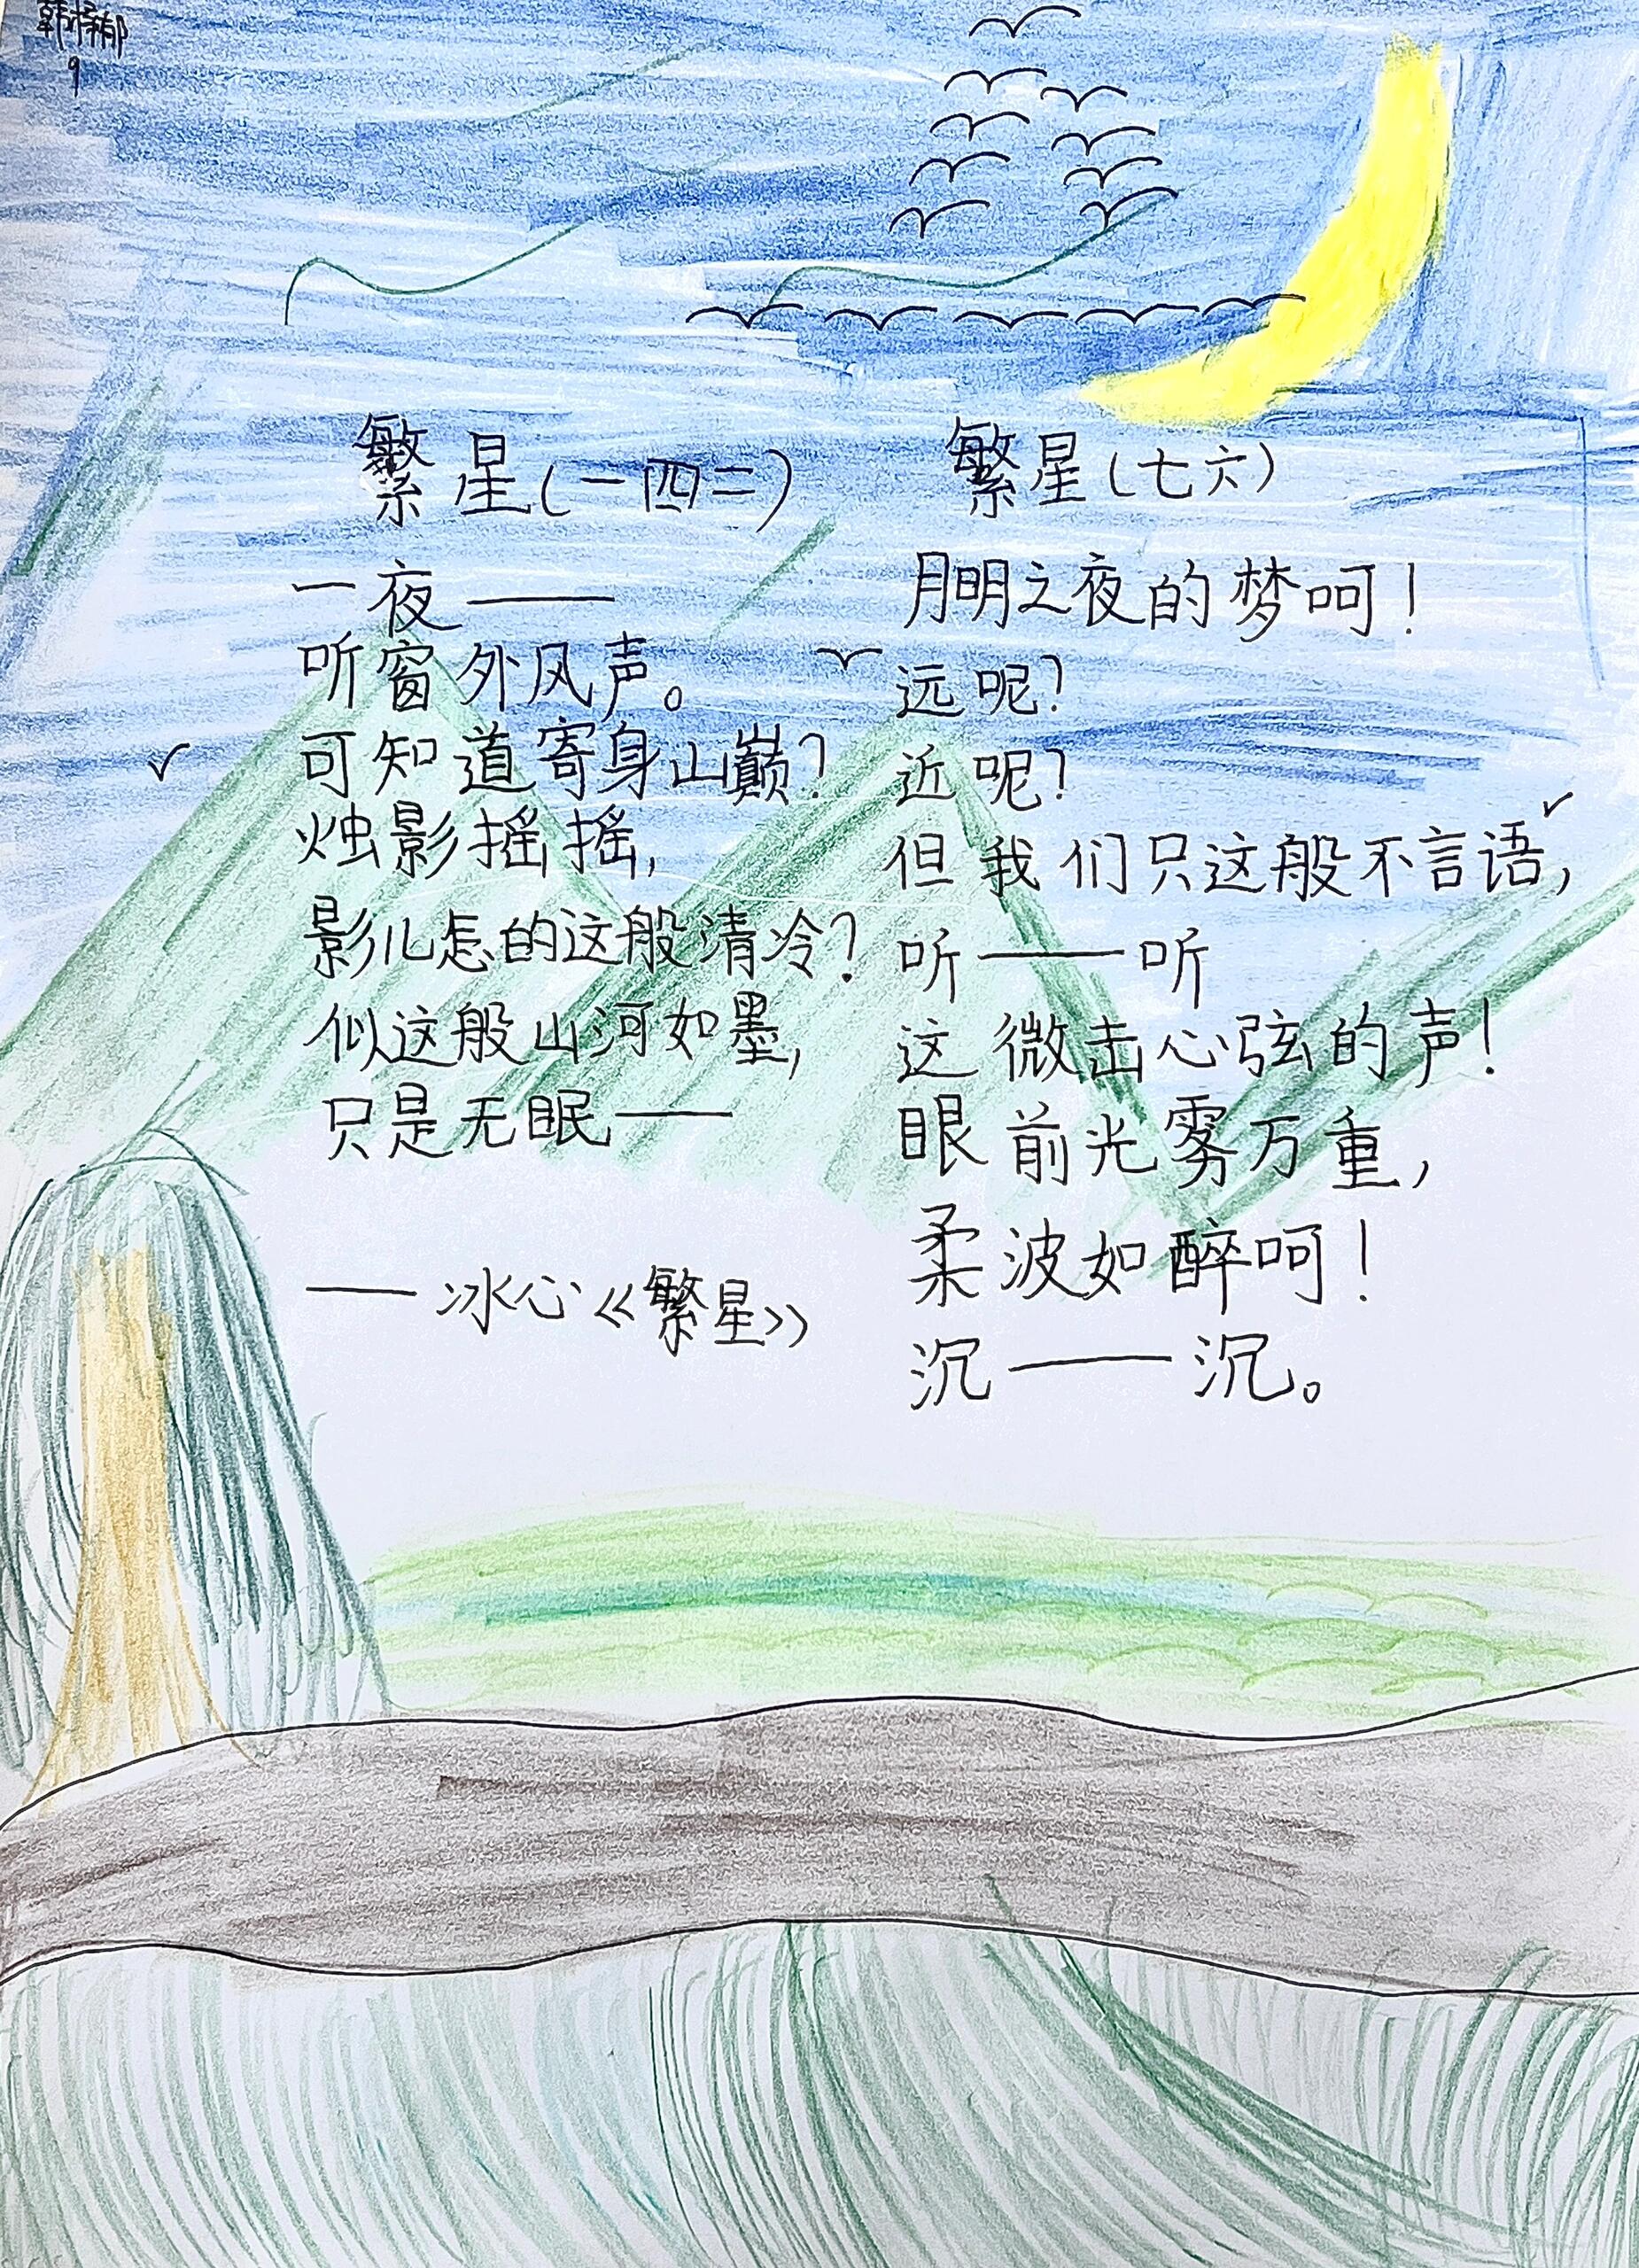 韩梓郁
9
繁星(一四二)
一夜——
听窗外风声。
可知道寄身山巅?
烛影摇摇,
影儿怎的这般清冷?
似这般山河如墨,
只是无眠——
——冰心《繁星》
繁星(七六)
月明之夜的梦呵!
远呢?
近呢?
但我们只这般不言语,
听——听
这微击心弦的声!
眼前光雾万重,
柔波如醉呵!
沉——沉。